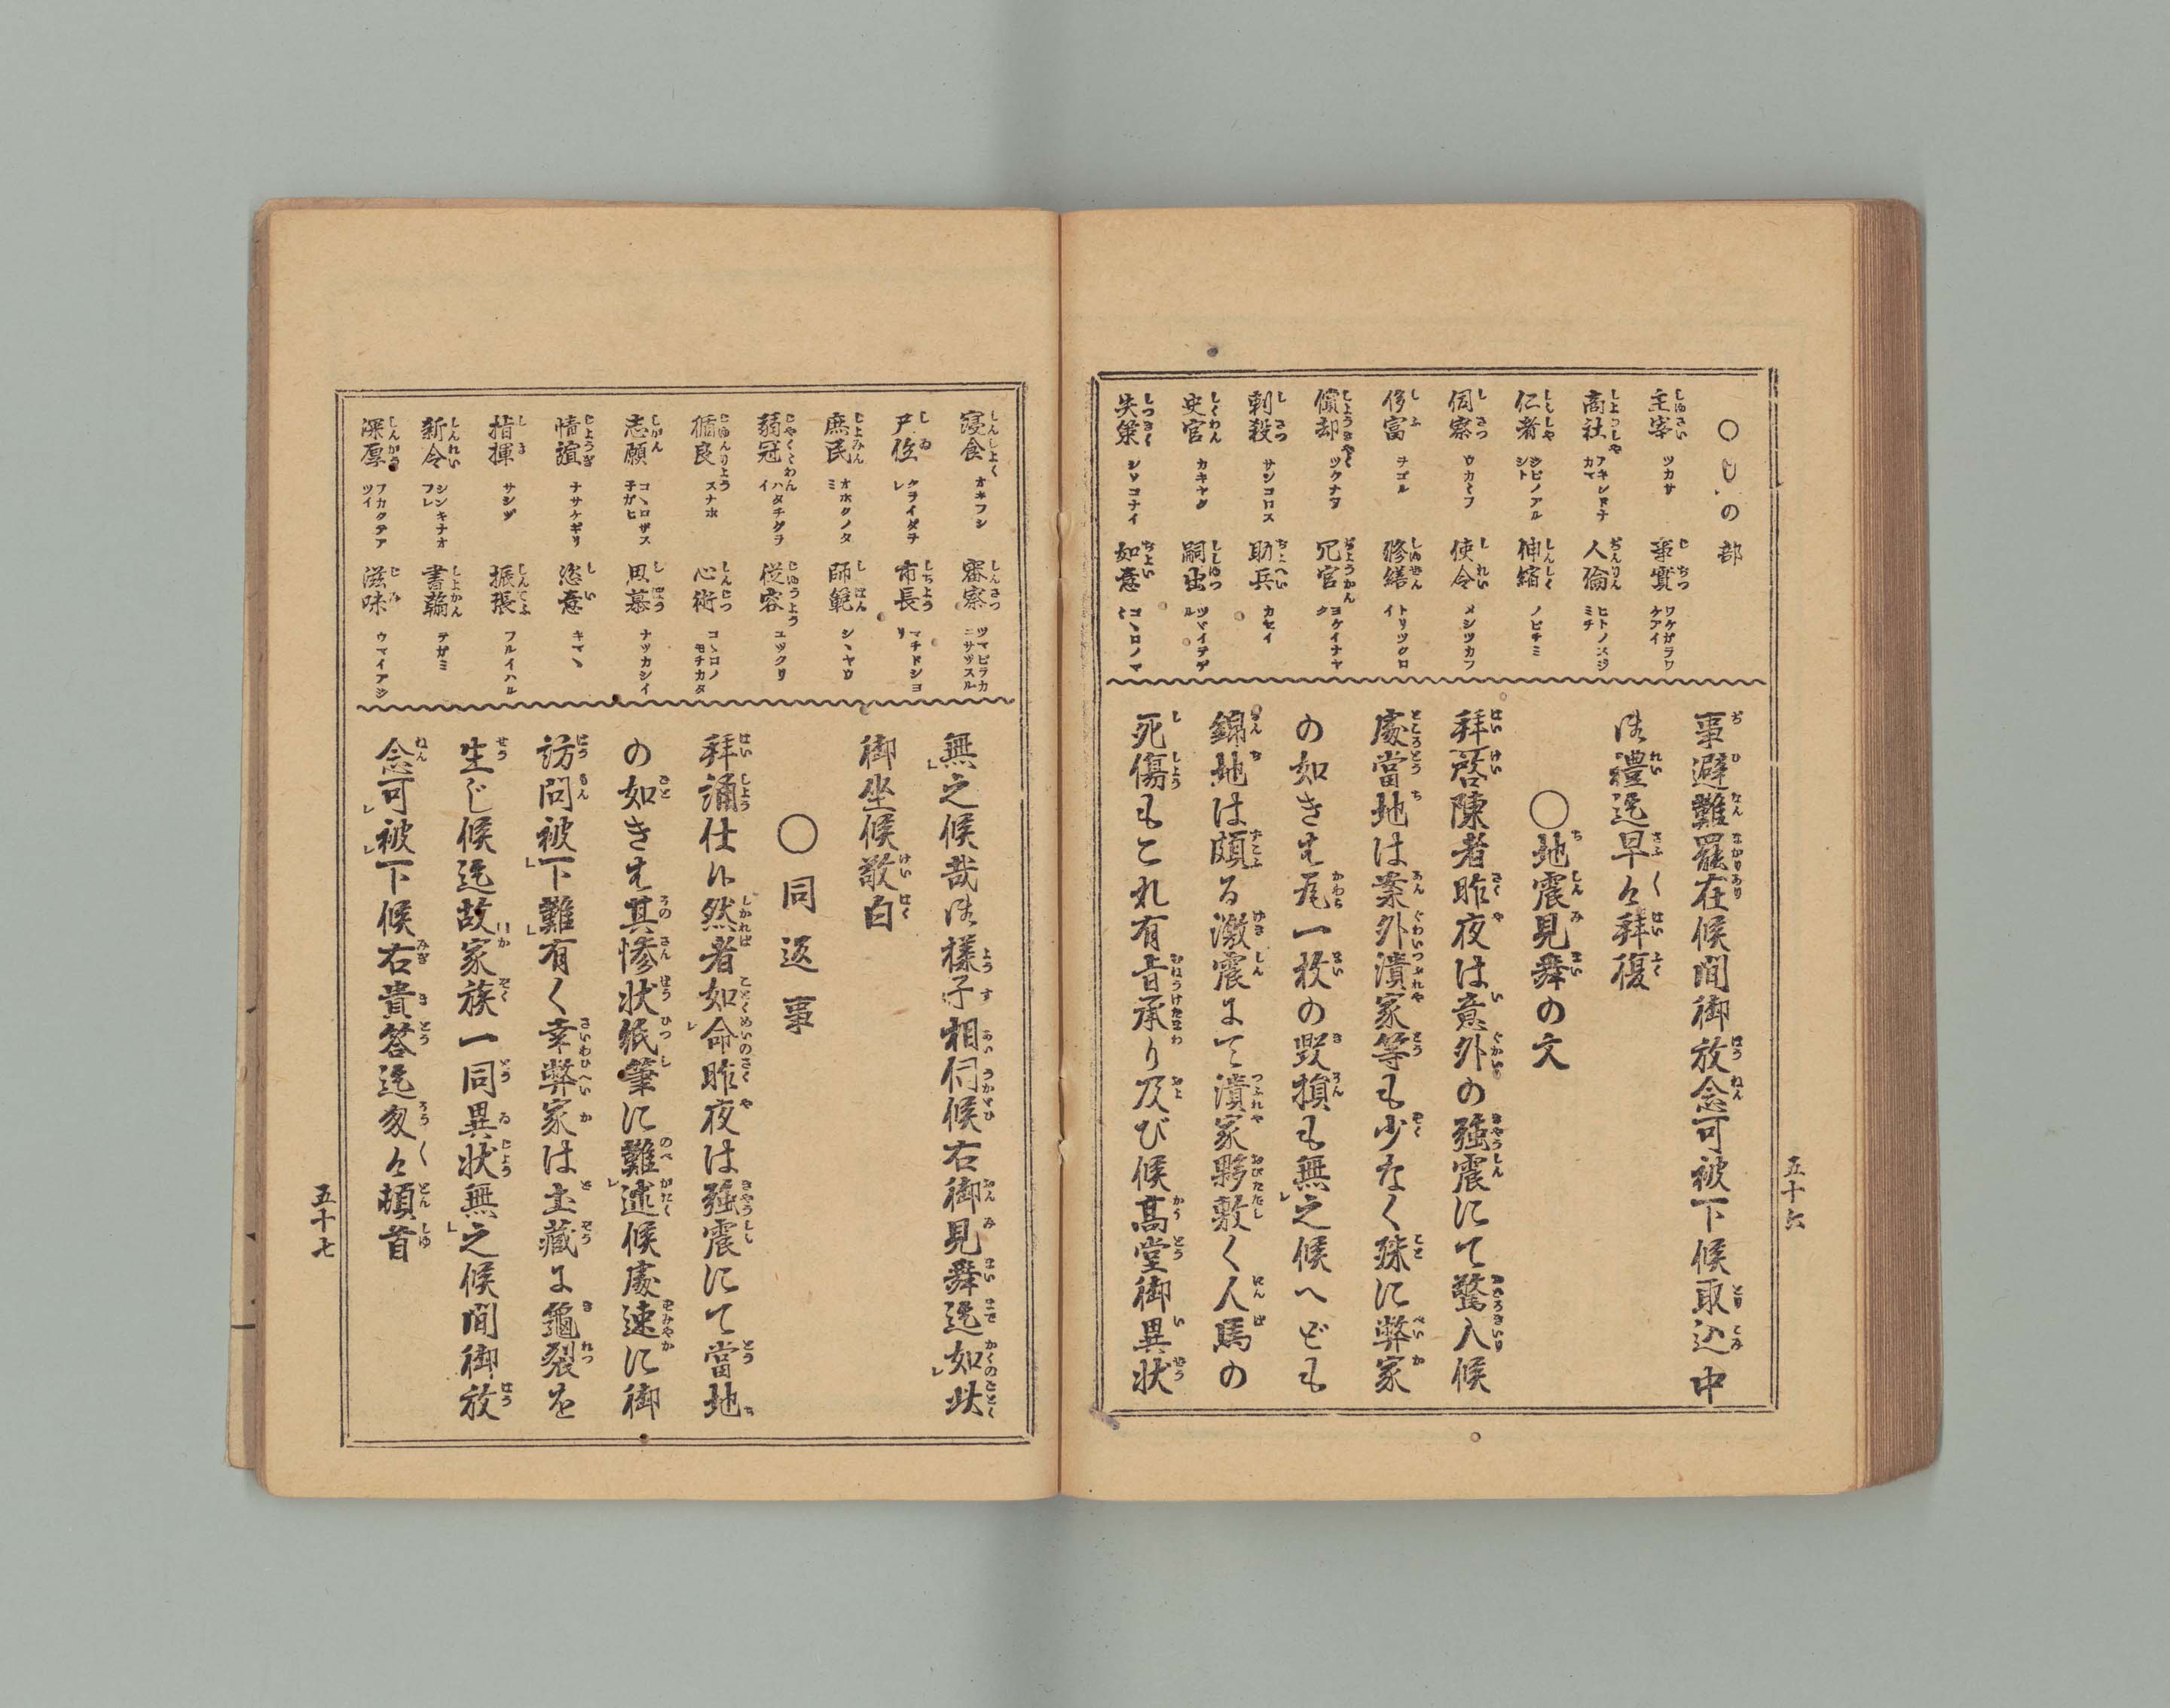 ○しの部
主宰 ツカサ 事實 ワケガラワケアイ
商社 アキンドナカマ 人倫 ヒトノスジミチ
仁者 ジヒノアルシト 伸縮 ノビチミ
伺察 ウカヾフ 使令 メシツカフ
侈富 ヲゴル 修繕 トリツクロイ
償却 ツクナフ 冗官 ヨケイナヤク
刺殺 サシコロス 助兵 カセイ
史官 カキヤク 嗣出 ツヾイテデル
失策 シソコナイ 如意 コヽロノマヽ
事避難罷在候間御放念可被下候取込中
御禮迄早々拜復
○地震見舞の文
拜啓陳者昨夜は意外の強震にて驚入候
處當地は案外潰家等も少なく殊に弊家
の如きは瓦一枚の毀損も無之候へども
錦地は頗る激震にて潰家夥敷く人馬の
死傷もこれ有旨承り及び候高堂御異状
五十六
寝食 オキフシ 審察 ツマビラカニサッスル
尸位 クライダヲレ 市長 マチドシヨリ
庶民 オホクノタミ 師範 シヽヤウ
弱冠 ハタチグライ 從容 ユックリ
循良 スナホ 心術 コヽロノモチカタ
志願 コヽロザスネガヒ 思慕 ナツカシイ
情誼 ナサケギリ 恣意 キマヽ
指揮 サシヅ 振張 フルイハル
新令 シンキナオフレ 書翰 テガミ
深厚 フカクテアツイ 滋味 ウマイアジ
無之候哉御樣子相伺候右御見舞迄如此
御坐候敬白
○同返事
拜誦仕候然者如命昨夜は強震にて當地
の如きは其惨状紙筆に難述候處速に御
訪問被下難有く幸弊家は土藏に龜裂を
生じ候迄故家族一同異状無之候間御放
念可被下候右貴答迄匆々頓首
五十七